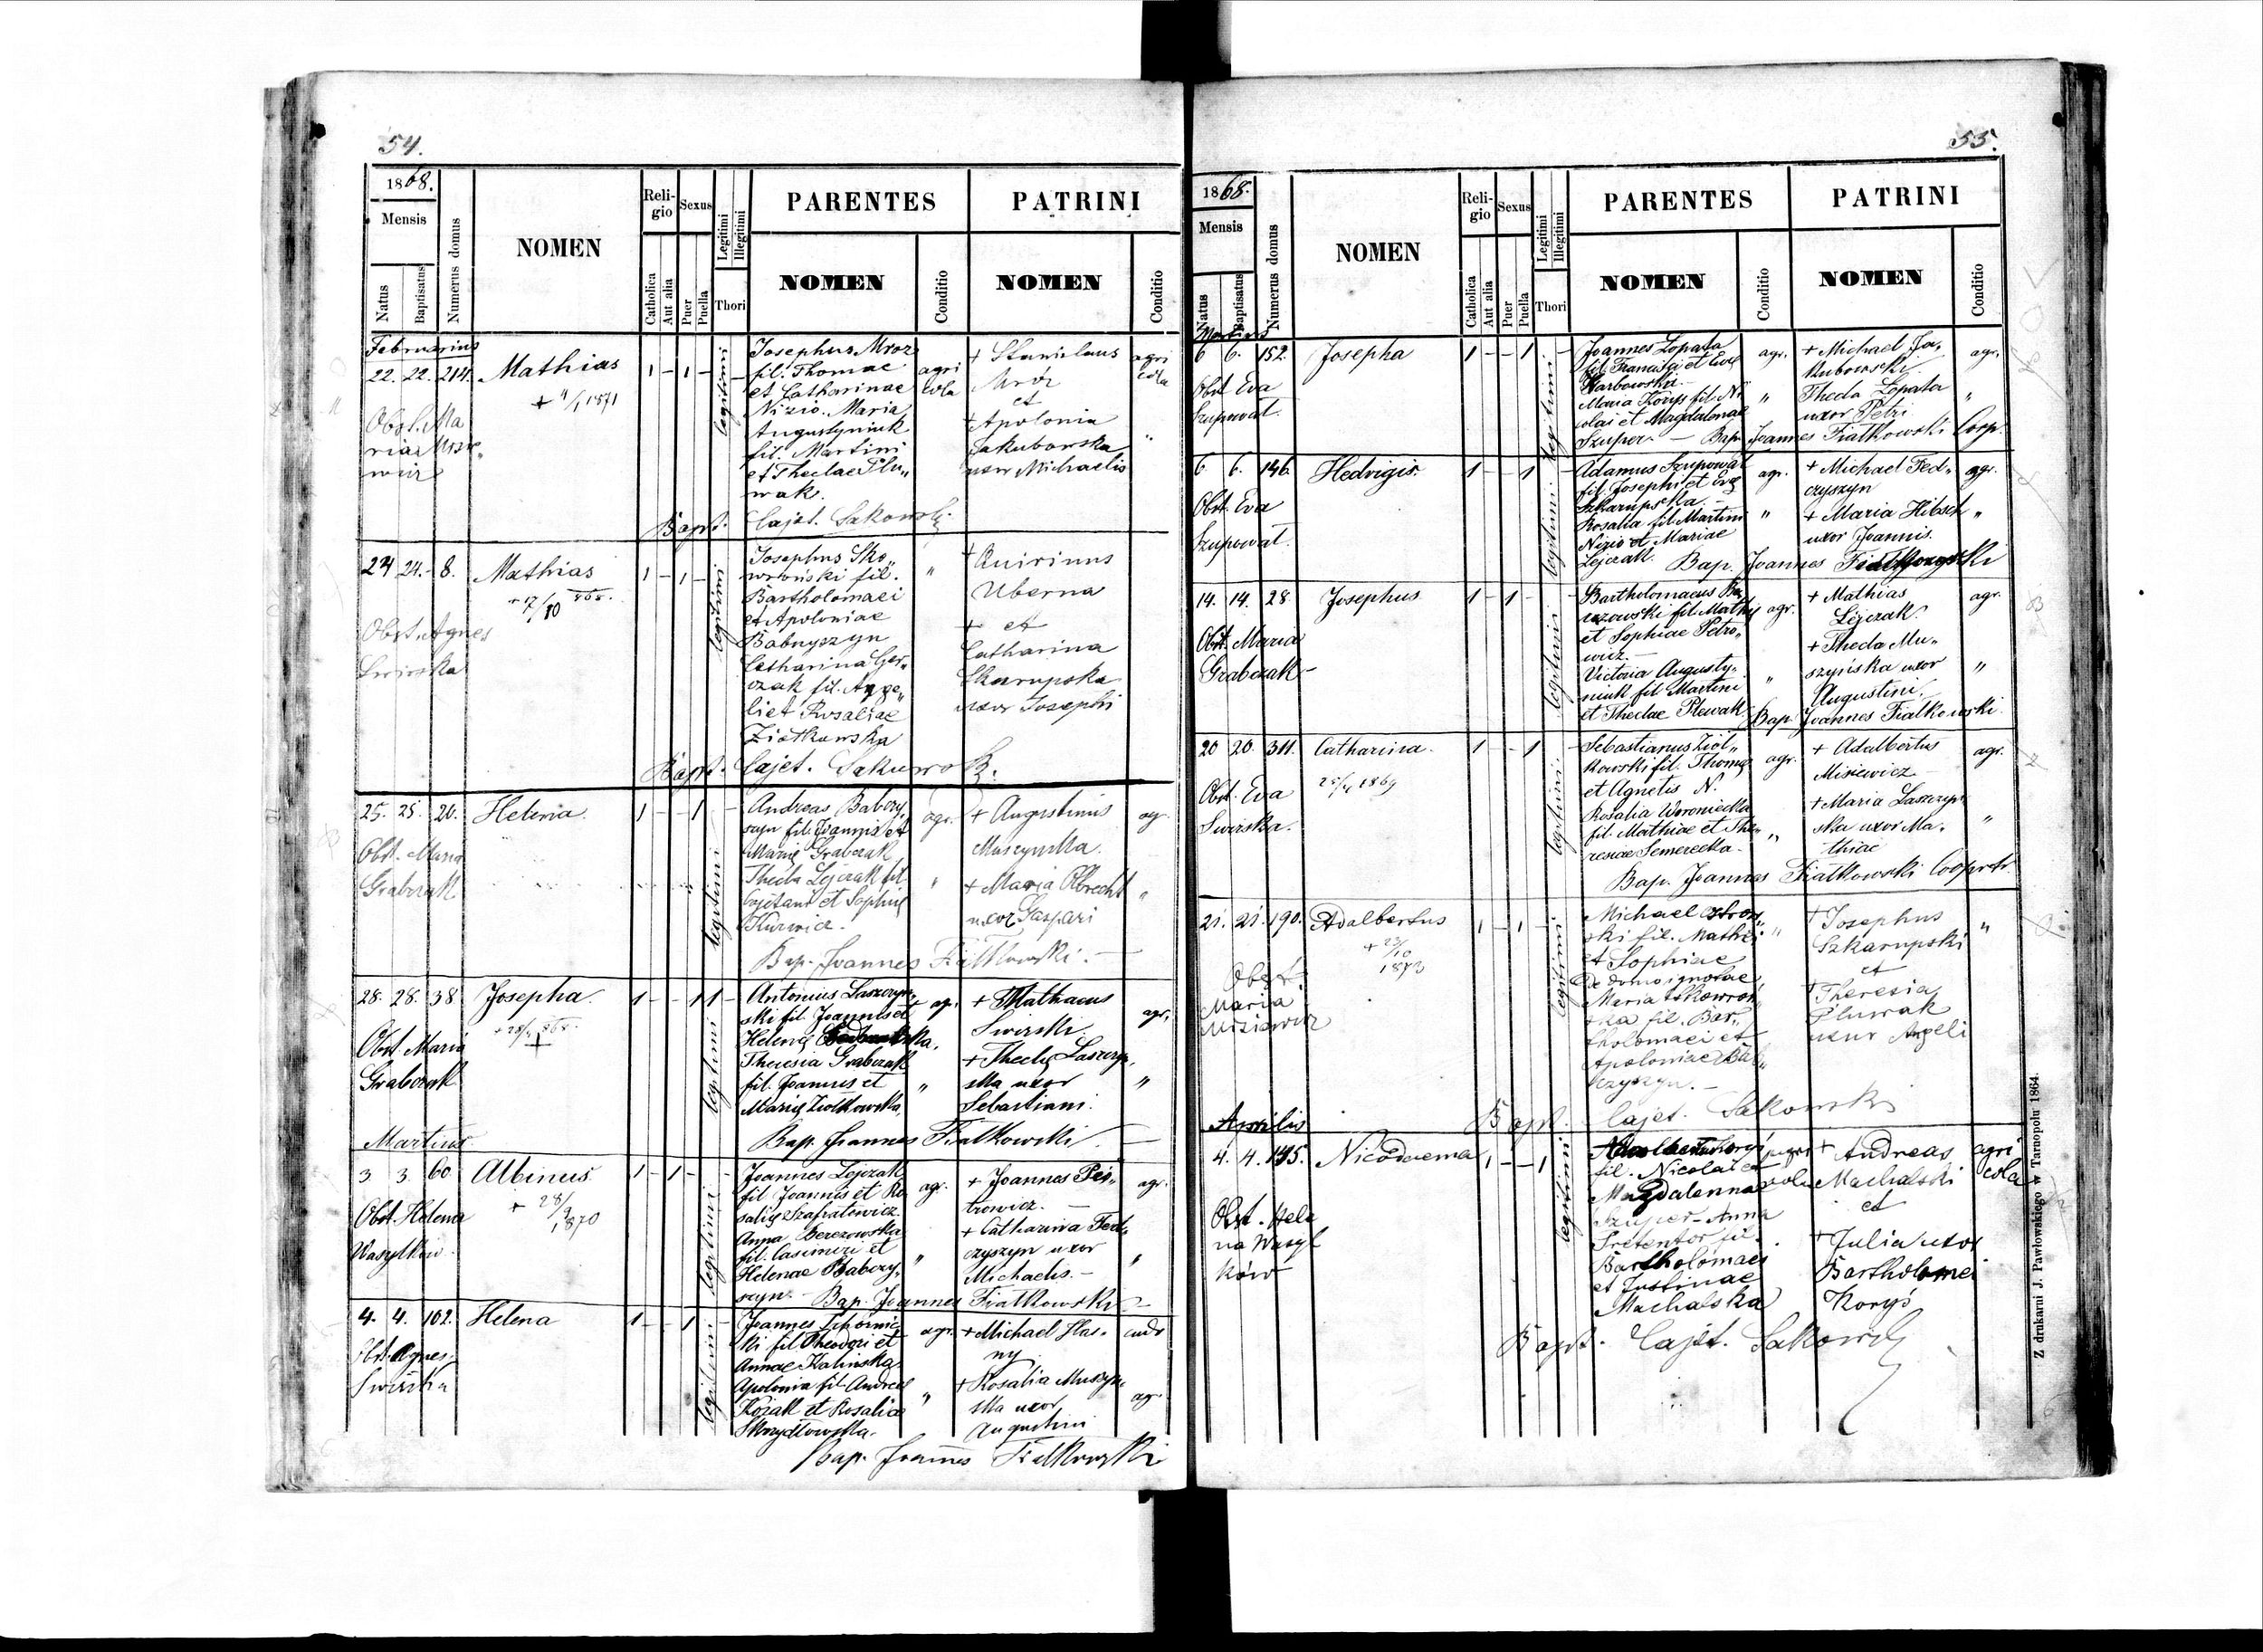 54.
1868.
Mensis
Natus
Baptisatus
Numerus domus
NOMEN
Religio
Catholica
Aut alia
Sexus
Puer
Puella
Legitimi
Illegitimi
Thori
PARENTES
NOMEN
Conditio
PATRINI
NOMEN
Conditio
Februarius
22. 22. 214. Mathias 1 - 1 -
+ 4/1 1871
Obst. Maria
legitimi
Josephus Mroz
fil. Thomae
et Catharinae
Nizio. Maria
Augustyniuk
fil. Martini
et Theclae Plu„
wak.
agricola
+ Stanislaus
Mróz
et
+ Apolonia
Jakubowska
uxor Michaelis
agricola
„
Bapt. Cajet. Sakowski
24 24. 8. Mathias 1 - 1 -
+ 17/10 868.
Obst. Agnes
Swirska
legitimi
Josephus Sko„
wroński fil.
Bartholomaei
et Apoloniae
Babczyszyn
Catharina
czak fil. Ange„
li et Rosaliae
Ziołkowska
„
+ Quirinus
Uberna
+ et
Catharina
Skarupska
uxor Josephi
Bapt. Cajet. Sakowski
25. 25. 26. Helena 1 - - 1 -
Obst. Maria
Grabczak
legitimi
Andreas Babczy„
szyn fil. Joannis et
Mariae Grabczak
Thecla Lejczak fil.
Cajetani et Sophiae
Kurwicz.
agr.
„
+ Augustinus
Muszynska.
+ Maria Olbrecht
uxor Gaspari
agr.
„
Bap. Joannes Fiałkowski. —
28. 28. 38 Josepha. 1 - - 1 1 -
868.
Obst. Maria
Grabczak
legitimi
Antonius Laszczyn„
ski fil. Joannis et
Helenae
Theresia Grabczak
fil. Joannis et
Mariae Ziołkowska
agr.
„
+ Mathaeus
Swirski.
+ Thecla Laszczyn„
ska uxor
Sebastiani.
agr.
„
Bap. Joannes Fiałkowski. —
Martius
3 3. 60 Albinus. 1 - 1 - -
+ 28/9 1870
Obst. Helena
Wasylków
legitimi
Joannes Lejczak
fil Joannis et Ro
saliae Szafratowicz.
Anna Berezowska
fil. Casimiri et
Helenae Babczy„
szyn. —
agr.
„
+ Joannes Pio„
trowicz.
+ Catharina Fed„
czyszyn uxor
Michaelis. —
agr.
„
Bap. Joannes Fiałkowski —
4. 4. 102. Helena 1 - - 1 -
Obst. Agnes
Swirska
legitimi
Joannes
ki fil Theodori et
Annae Kalinska
Apolonia fil Andreae
Kozak et Rosaliae
Skrzydłowska.
agr.
„
+ Michael Has„
ny
+ Rosalia Muszyn„
ska uxor
Augustini
agr.
Bap. Joannes Fiałkowski
55.
1868.
Mensis
Natus
Baptisatus
Numerus domus
NOMEN
Religio
Catholica
Aut alia
Sexus
Puer
Puella
Legitimi
Illegitimi
Thori
PARENTES
NOMEN
Conditio
PATRINI
NOMEN
Conditio
Martius
6 6. 152. Josepha 1 - - 1 -
Obst. Eva
Szupowat.
legitimi
Joannes Łopata
fil. Francisci et Evae
Garbowska. —
Maria Koryś fil. Ni
colai et Magdalenae
Szuper. —
agr.
„
+ Michael Ja„
kubowski.
Thecla Łopata
uxor Petri
agr.
„
Bap. Joannes Fiałkowski Coop.
6. 6. 146. Hedvigis. 1 - - 1 -
Obst. Eva
Szupowat.
legitimi
Adamus Szupowat
fil. Josephi et Evae
Szkarupska. —
Rosalia fil. Martini
Nizio et Mariae
Lejczak.
agr.
„
+ Michael Fed„
czyszyn
+ Maria Hibsch
uxor Joannis.
agr.
„
Bap. Joannes Fiałkowski
14. 14. 28. Josephus 1 - 1 -
Obst. Maria
Grabczak —
legitimi
Bartholomaeus
fil. Mathiae
et Sophiae Petro„
wicz. —
Victoria Augusty„
niuk fil Martini
et Theclae Plewak
agr.
„
+ Mathias
Lejczak.
+ Thecla Mu„
szyńska uxor
Augustini.
agr.
„
Bap. Joannes Fiałkowski.
20 20. 311. Catharina. 1 - - 1
25/4 1869
Obst. Eva
Swirska.
legitimi
Sebastianus Ziół„
kowski fil. Thomae
et Agnetis N.
Rosalia Woroniecka
fil. Mathiae et The„
resiae Semerecka —
agr.
„
+ Adalbertus
Misiewicz —
+ Maria Laszczyn
ska uxor Ma„
thiae
agr.
„
Bap. Joannes Fiałkowski Cooprtr.
21. 21. 190. Adalbertus 1 - 1 -
+ 23/10 1873
Obst.
Maria
Misiewicz
legitimi
Michael Ostrow„
ski fil. Mathei
et Sophiae
De domo ignotae
Maria Skowroń„
ska fil. Bar„
tholomaei et
Apoloniae Bab„
czyszyn. —
„
+ Josephus
Szkarupski
et
+ Theresia
Pluwak
uxor Angeli
„
Bapt. Cajet. Sakowski
Aprilis
4. 4. 195. Nicodaema 1 - - 1
Obst. Hele
na Wasyl
ków
legitimi
fil. Nicolai et
Magdalennae
Szuper - Anna
Pretentor fil.
Bartholomaei
et Justinae
Machalska
agricola
+ Andreas
Machalski
et
+ Julia uxor
Bartholomei
Koryś
agricola
Bapt. Cajet. Sakowski
Z drukarni J. Pawłowskiego w Tarnopolu 1864.